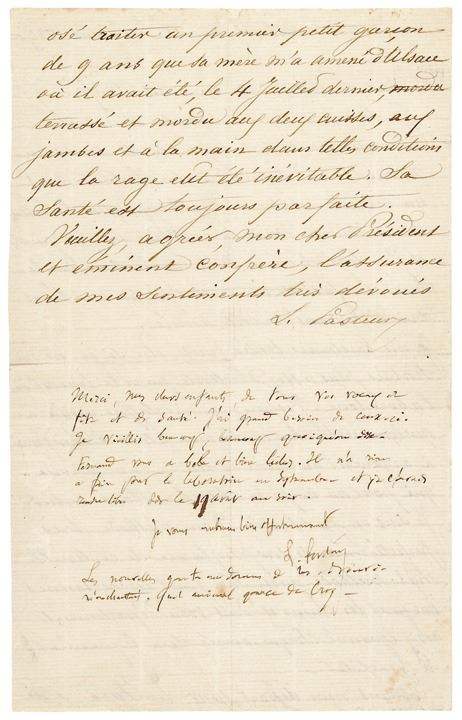 osé traiter un premier petit garçon
de 9 ans que sa mère m'a amené d'Alsace
où il avait été, le 4 Juillet dernier, mordu
terrassé et mordu aux deux cuisses, aux
jambes et à la main dans telles conditions
que la rage eut été inévitable. Sa
Santé est toujours parfaite.
Veuillez, agréer, mon cher Président
et éminent confrère, l'assurance
de mes sentiments très dévoués
L. Pasteur
Merci, mes chers enfants, de tous vos vœux de
fête et de santé. J'ai grand besoin de ceux-ci.
Je vieillis beaucoup, beaucoup quoiqu'on dise
Fernand vous a
à faire pour le laboratoire en Septembre et
libre dès le 19 août au soir.
Je vous embrasse bien affectueusement
L. Pasteur
Les nouvelles que tu me donnes de
quel animal que ce de Croy